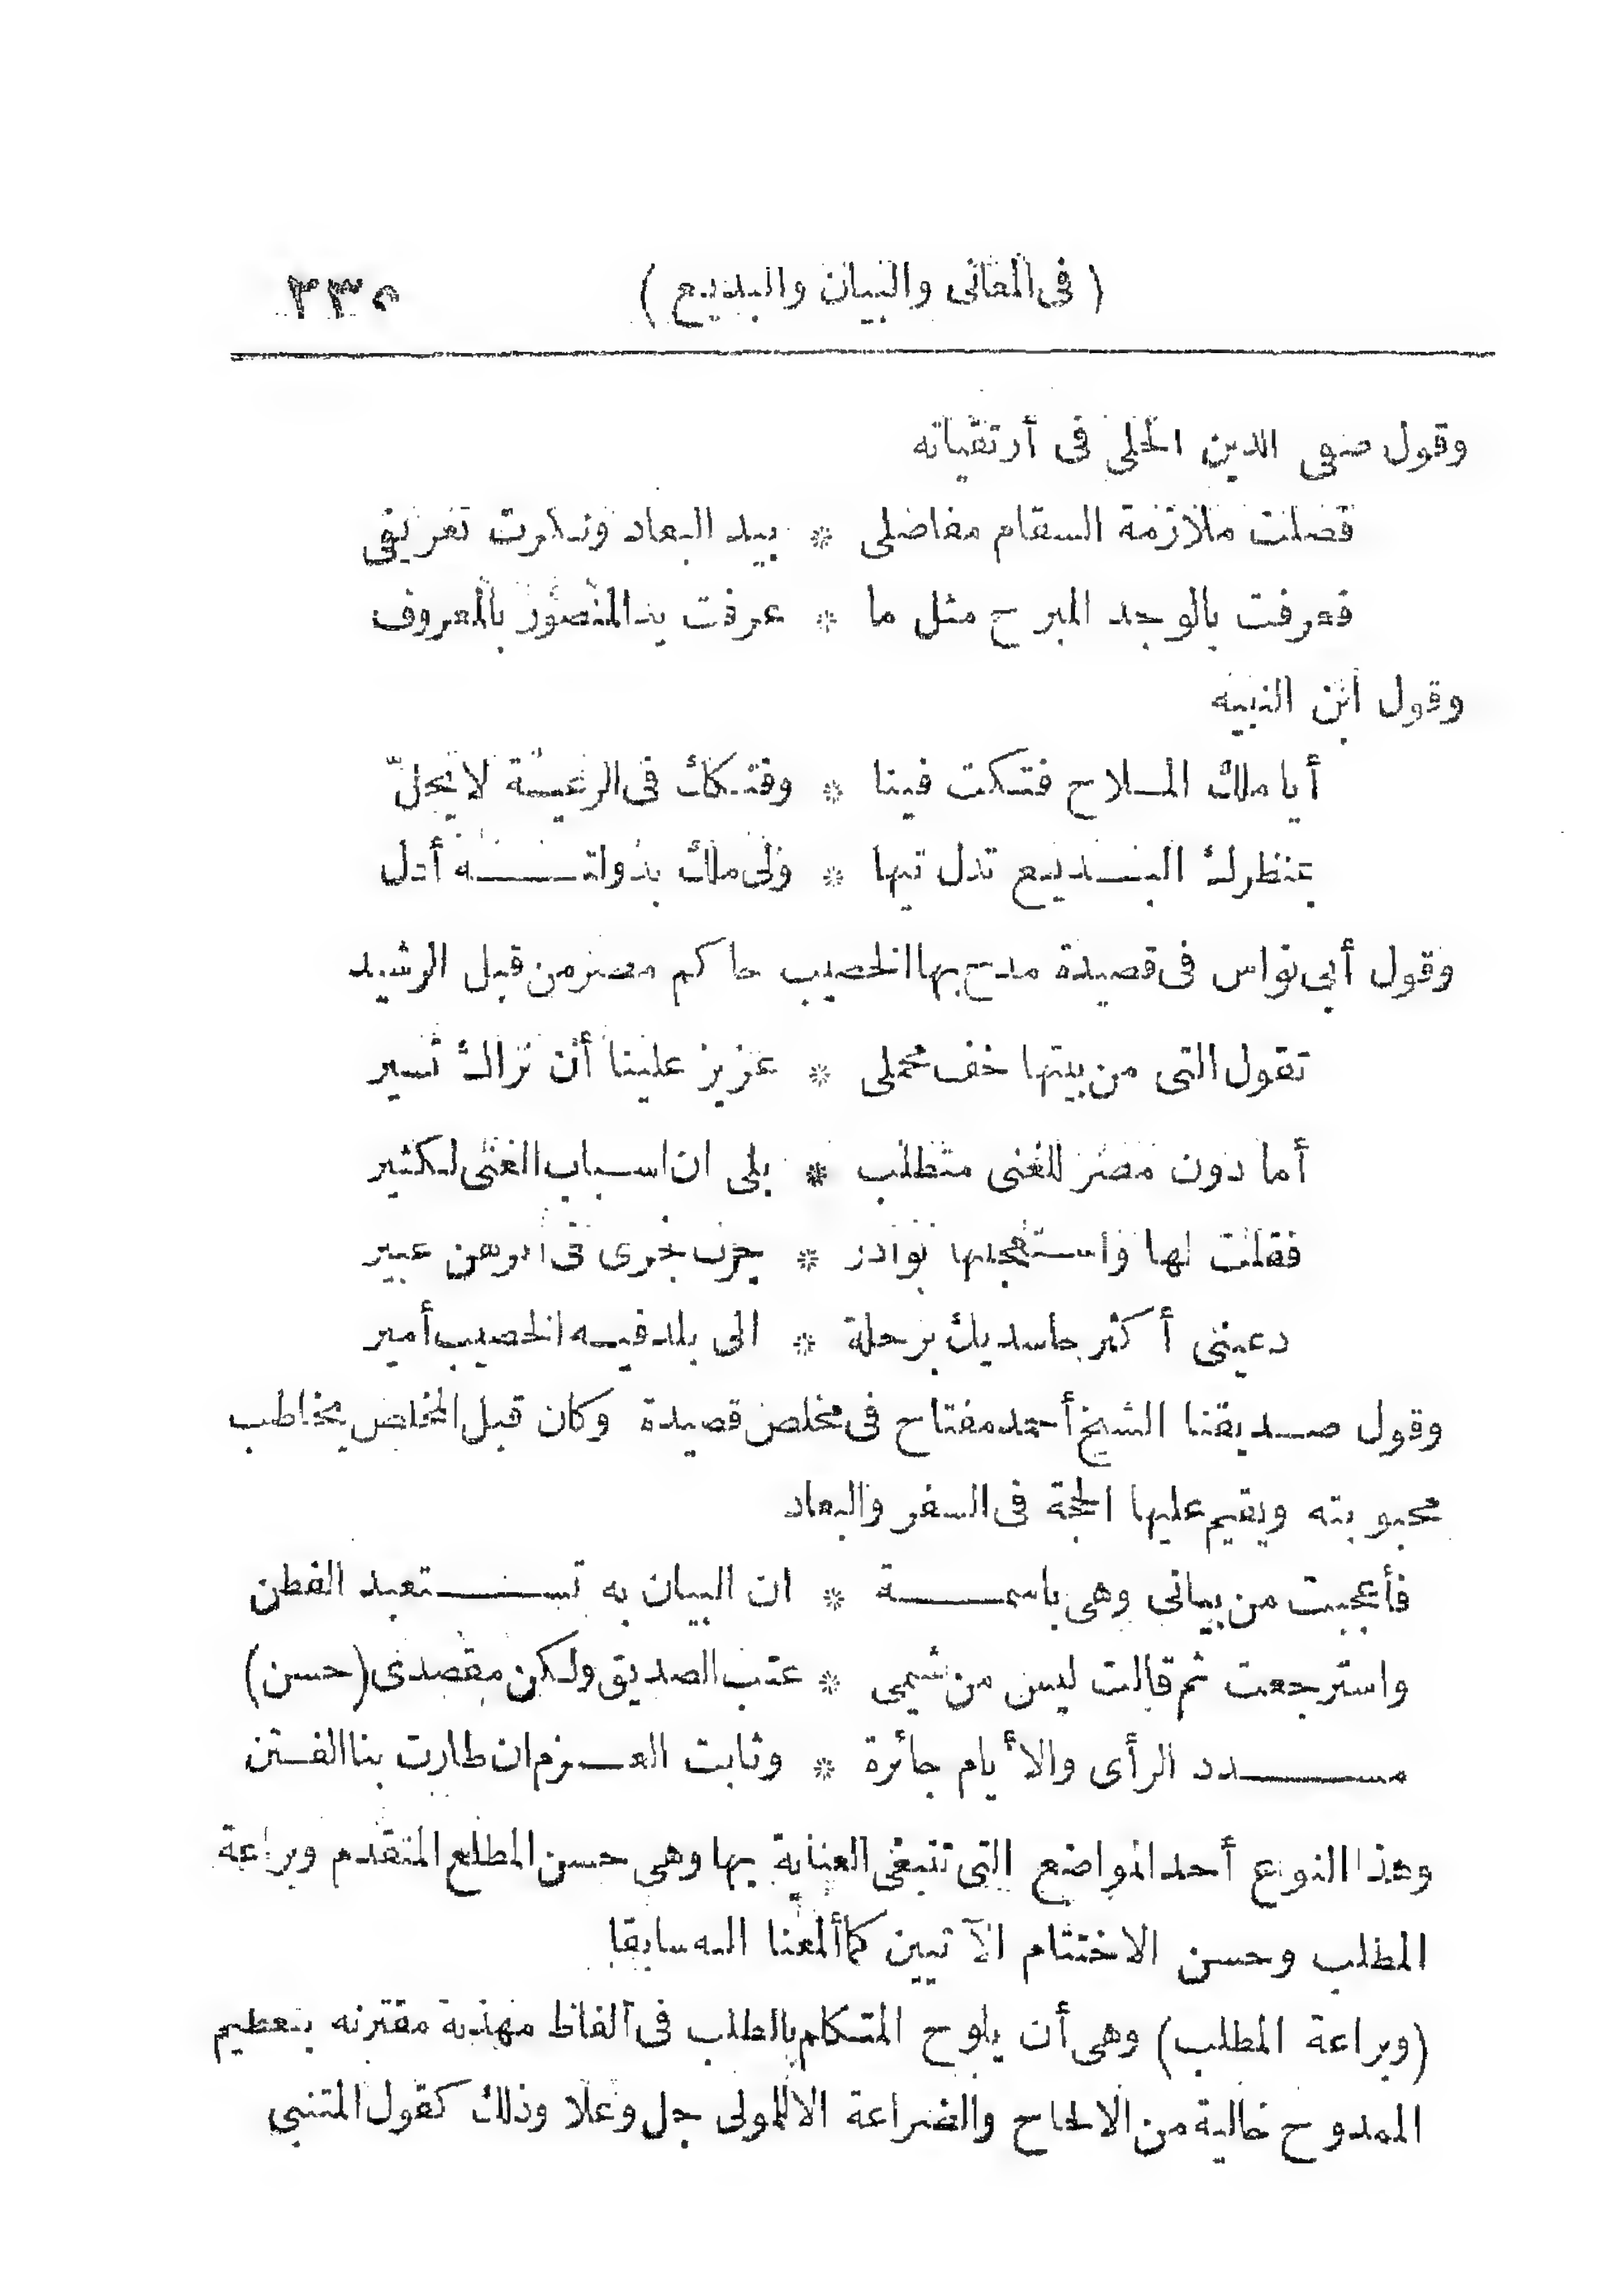 ( فى المعانى والبيان والبديع ) ٢٣٥
وقول صفى الدين الحلى فى أرتقياته
فصلت ملازمة السقام مفاضلى * بيد البعاد ونكرت تعريفى
فعرفت بالوجد المبرح مثل ما * عرفت يد المنصور بالمعروف
وقول ابن النبيه
أيا ملك الملاح فتكت فينا * وفتكك فى الرعية لا يحلّ
بمنظرك البديع تدل تيها * ولى ملك بدولته أدل
وقول أبى نواس فى قصيدة مدح بها الخصيب حاكم مصر من قبل الرشيد
تقول التى من بيتها خف محملى * عزيز علينا أن نراك تسير
أما دون مصر للغنى متطلب * بلى ان اسباب الغنى لكثير
فقلت لها واستعجلتها بوادر * جرت فجرى فى اثرهن عبير
دعينى أكثر حاسديك برحلة * الى بلد فيه الخصيب أمير
وقول صديقنا الشيخ أحمد مفتاح فى مخلص قصيدة وكان قبل المخلص يخاطب
محبوبته ويقيم عليها الحجة فى السفر والبعاد
فأعجبت من بيانى وهى باسمة * ان البيان به تستعبد الفطن
واسترجعت ثم قالت ليس من شيمى * عتب الصديق ولكن مقصدى (حسن)
مسدد الرأى والأيام جائرة * وثابت العزم ان طارت بنا الفتن
وهذا النوع أحد المواضع التى تنبغى العناية بها وهى حسن المطلع المتقدم وبراعة
المطلب وحسن الاختتام الآتيين كما ألمعنا اليه سابقا
(وبراعة المطلب) وهى أن يلوح المتكلم بالطلب فى ألفاظ مهذبة مقترنه بتعظيم
الممدوح خالية من الالحاح والضراعة الا للمولى جل وعلا وذلك كقول المتنبى